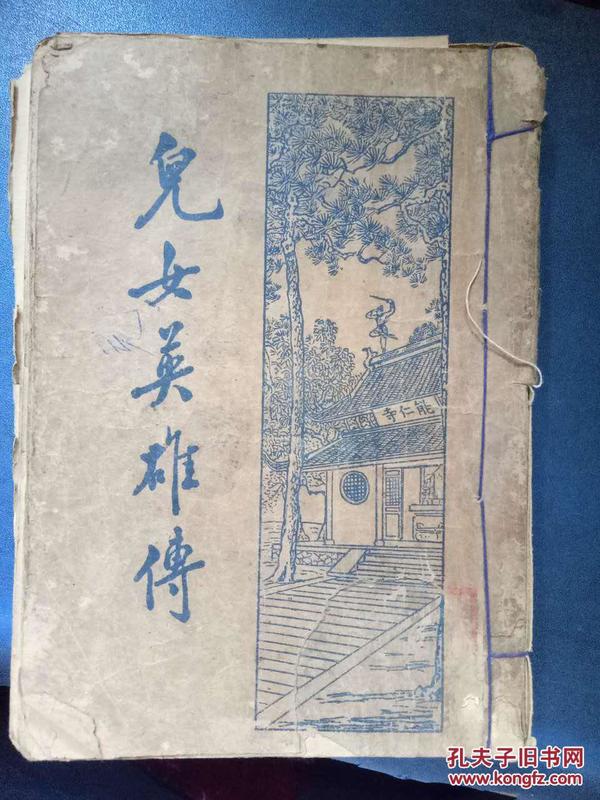 兒女英雄傳
能仁寺
孔夫子旧书网
www.kongfz.com